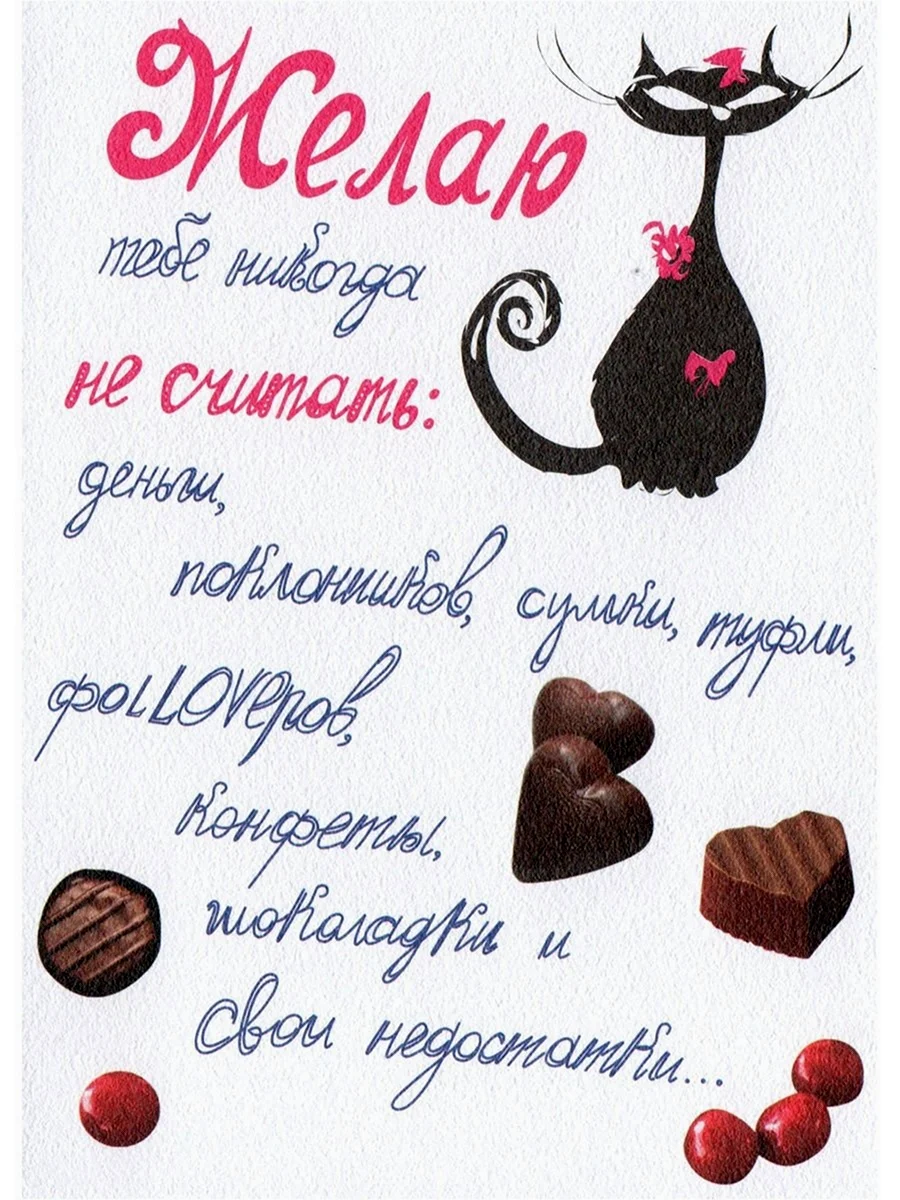 Желаю
тебе никогда
не считать:
деньги,
поклонников, сумки, туфли,
фоLLOVеров,
конфеты,
шоколадки и
свои недостатки...